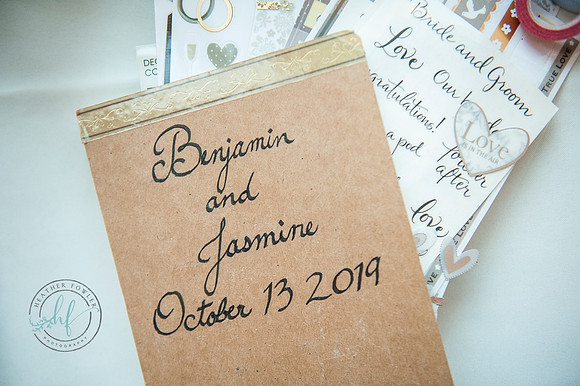 Benjamin
and
Jasmine
October 13 2019
Bride and Groom
Love Our
Congratulations!
a pod forever
after
love
Love
IS IN THE AIR
TRUE LOVE
HEATHER FOWLER
hf
PHOTOGRAPHY